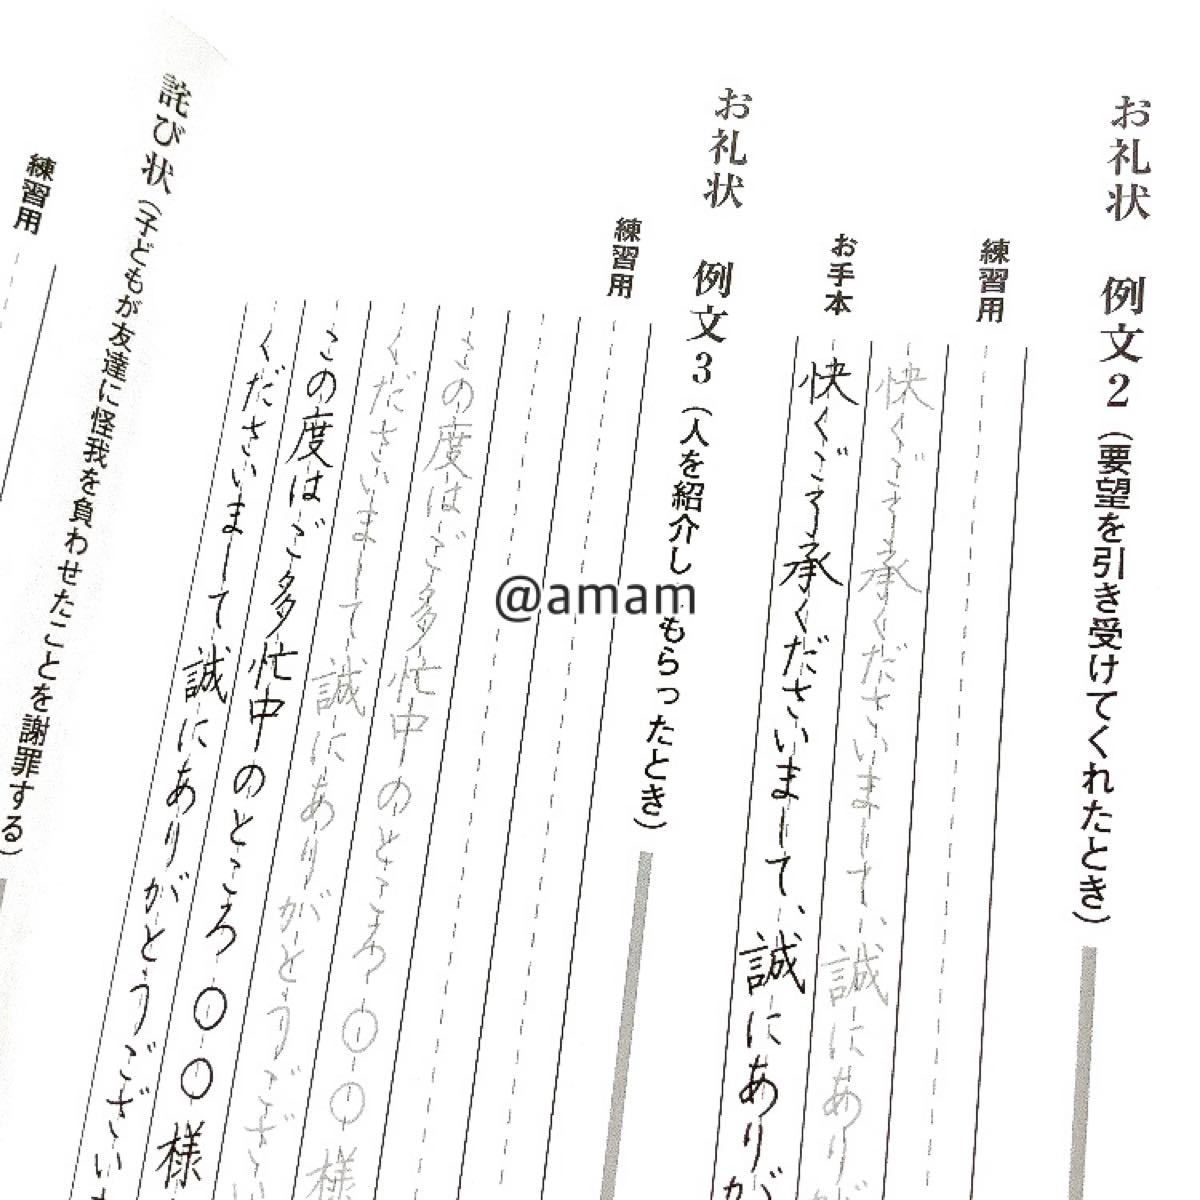 お礼状 例文2（要望を引き受けてくれたとき）
練習用
快くご了承くださいまして、誠にあり
お手本
快くご了承くださいまして、誠にありが
お礼状 例文3（人を紹介し もらったとき）
練習用
この度はご多忙中のところ〇〇様
くださいまして誠にありがとうござい
この度はご多忙中のところ〇〇様
くださいまして誠にありがとうござい
詫び状（子どもが友達に怪我を負わせたことを謝罪する）
練習用
@amam